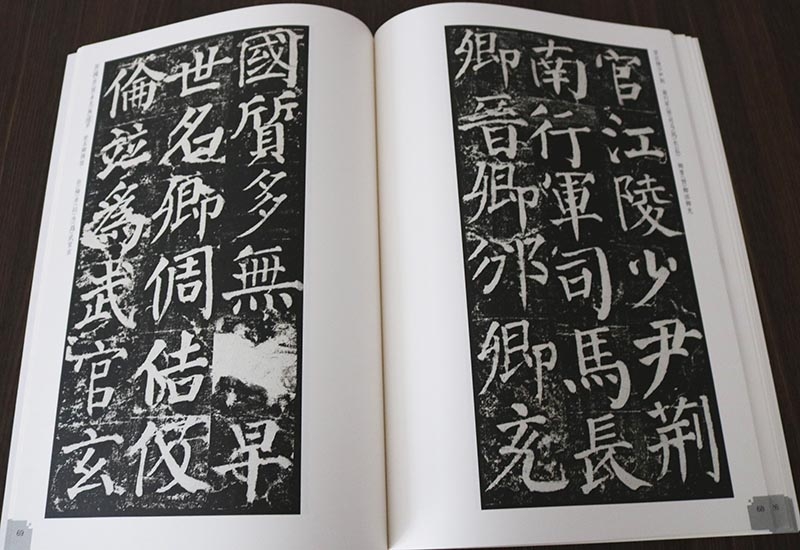 官江陵少尹荆
南行軍司馬長
卿晉卿邠卿充
國質多無早
世名卿倜佶伋
倫並為武官玄
69